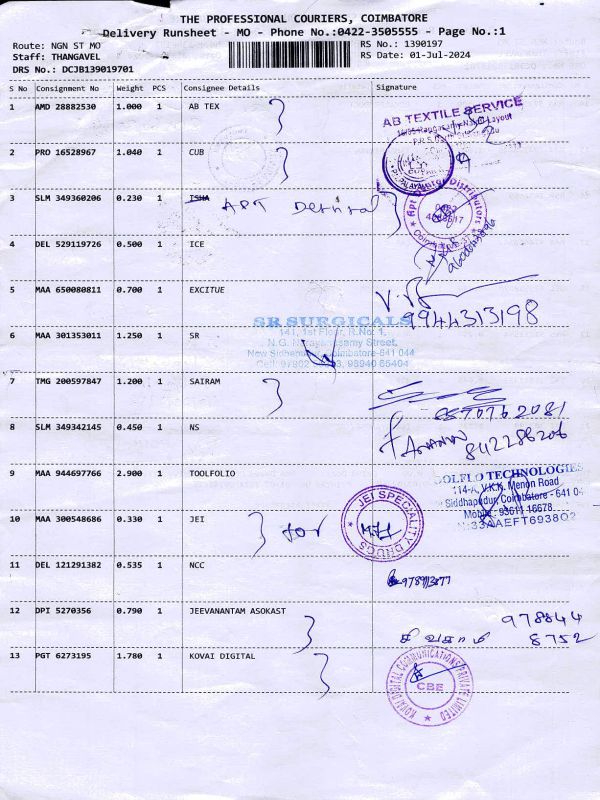 THE PROFESSIONAL COURIERS, COIMBATORE
Delivery Runsheet - MO - Phone No.:0422-3505555 - Page No.:1
Route: NGN ST MO
RS No.: 1390197
Staff: THANGAVEL
RS Date: 01-Jul-2024
DRS No.: DCJB139019701
S No Consignment No Weight PCS Consignee Details Signature
1 AMD 28882530 1.000 1 AB TEX
AB TEXTILE SERVICE
2 PRO 16528967 1.040 1 CUB
3 SLM 349360206 0.230 1 ISHA APT Dental
Apt Dental Distributors
4 DEL 529119726 0.500 1 ICE
5 MAA 650080811 0.700 1 EXCITUE
9944313198
SR SURGICALS
141, 1st Floor, R.No: 1,
N.G. Narayanasamy Street,
6 MAA 301353011 1.250 1 SR
New Siddhapudur, Coimbatore-641 044
7 TMG 200597847 1.200 1 SAIRAM
8 SLM 349342145 0.450 1 NS
9 MAA 944697766 2.900 1 TOOLFOLIO
TECHNOLOGIES
114-A, V.K.K. Menon Road
Siddhapudur, Coimbatore - 641 04
Mobile : 93611 16678
10 MAA 300548686 0.330 1 JEI for
JEI SPECIALITY DRUGS
11 DEL 121291382 0.535 1 NCC
12 DPI 5270356 0.790 1 JEEVANANTAM ASOKAST
978844
சிவகாமி 8752
13 PGT 6273195 1.780 1 KOVAI DIGITAL
KOVAI DIGITAL COMMUNICATIONS PRIVATE LIMITED
CBE